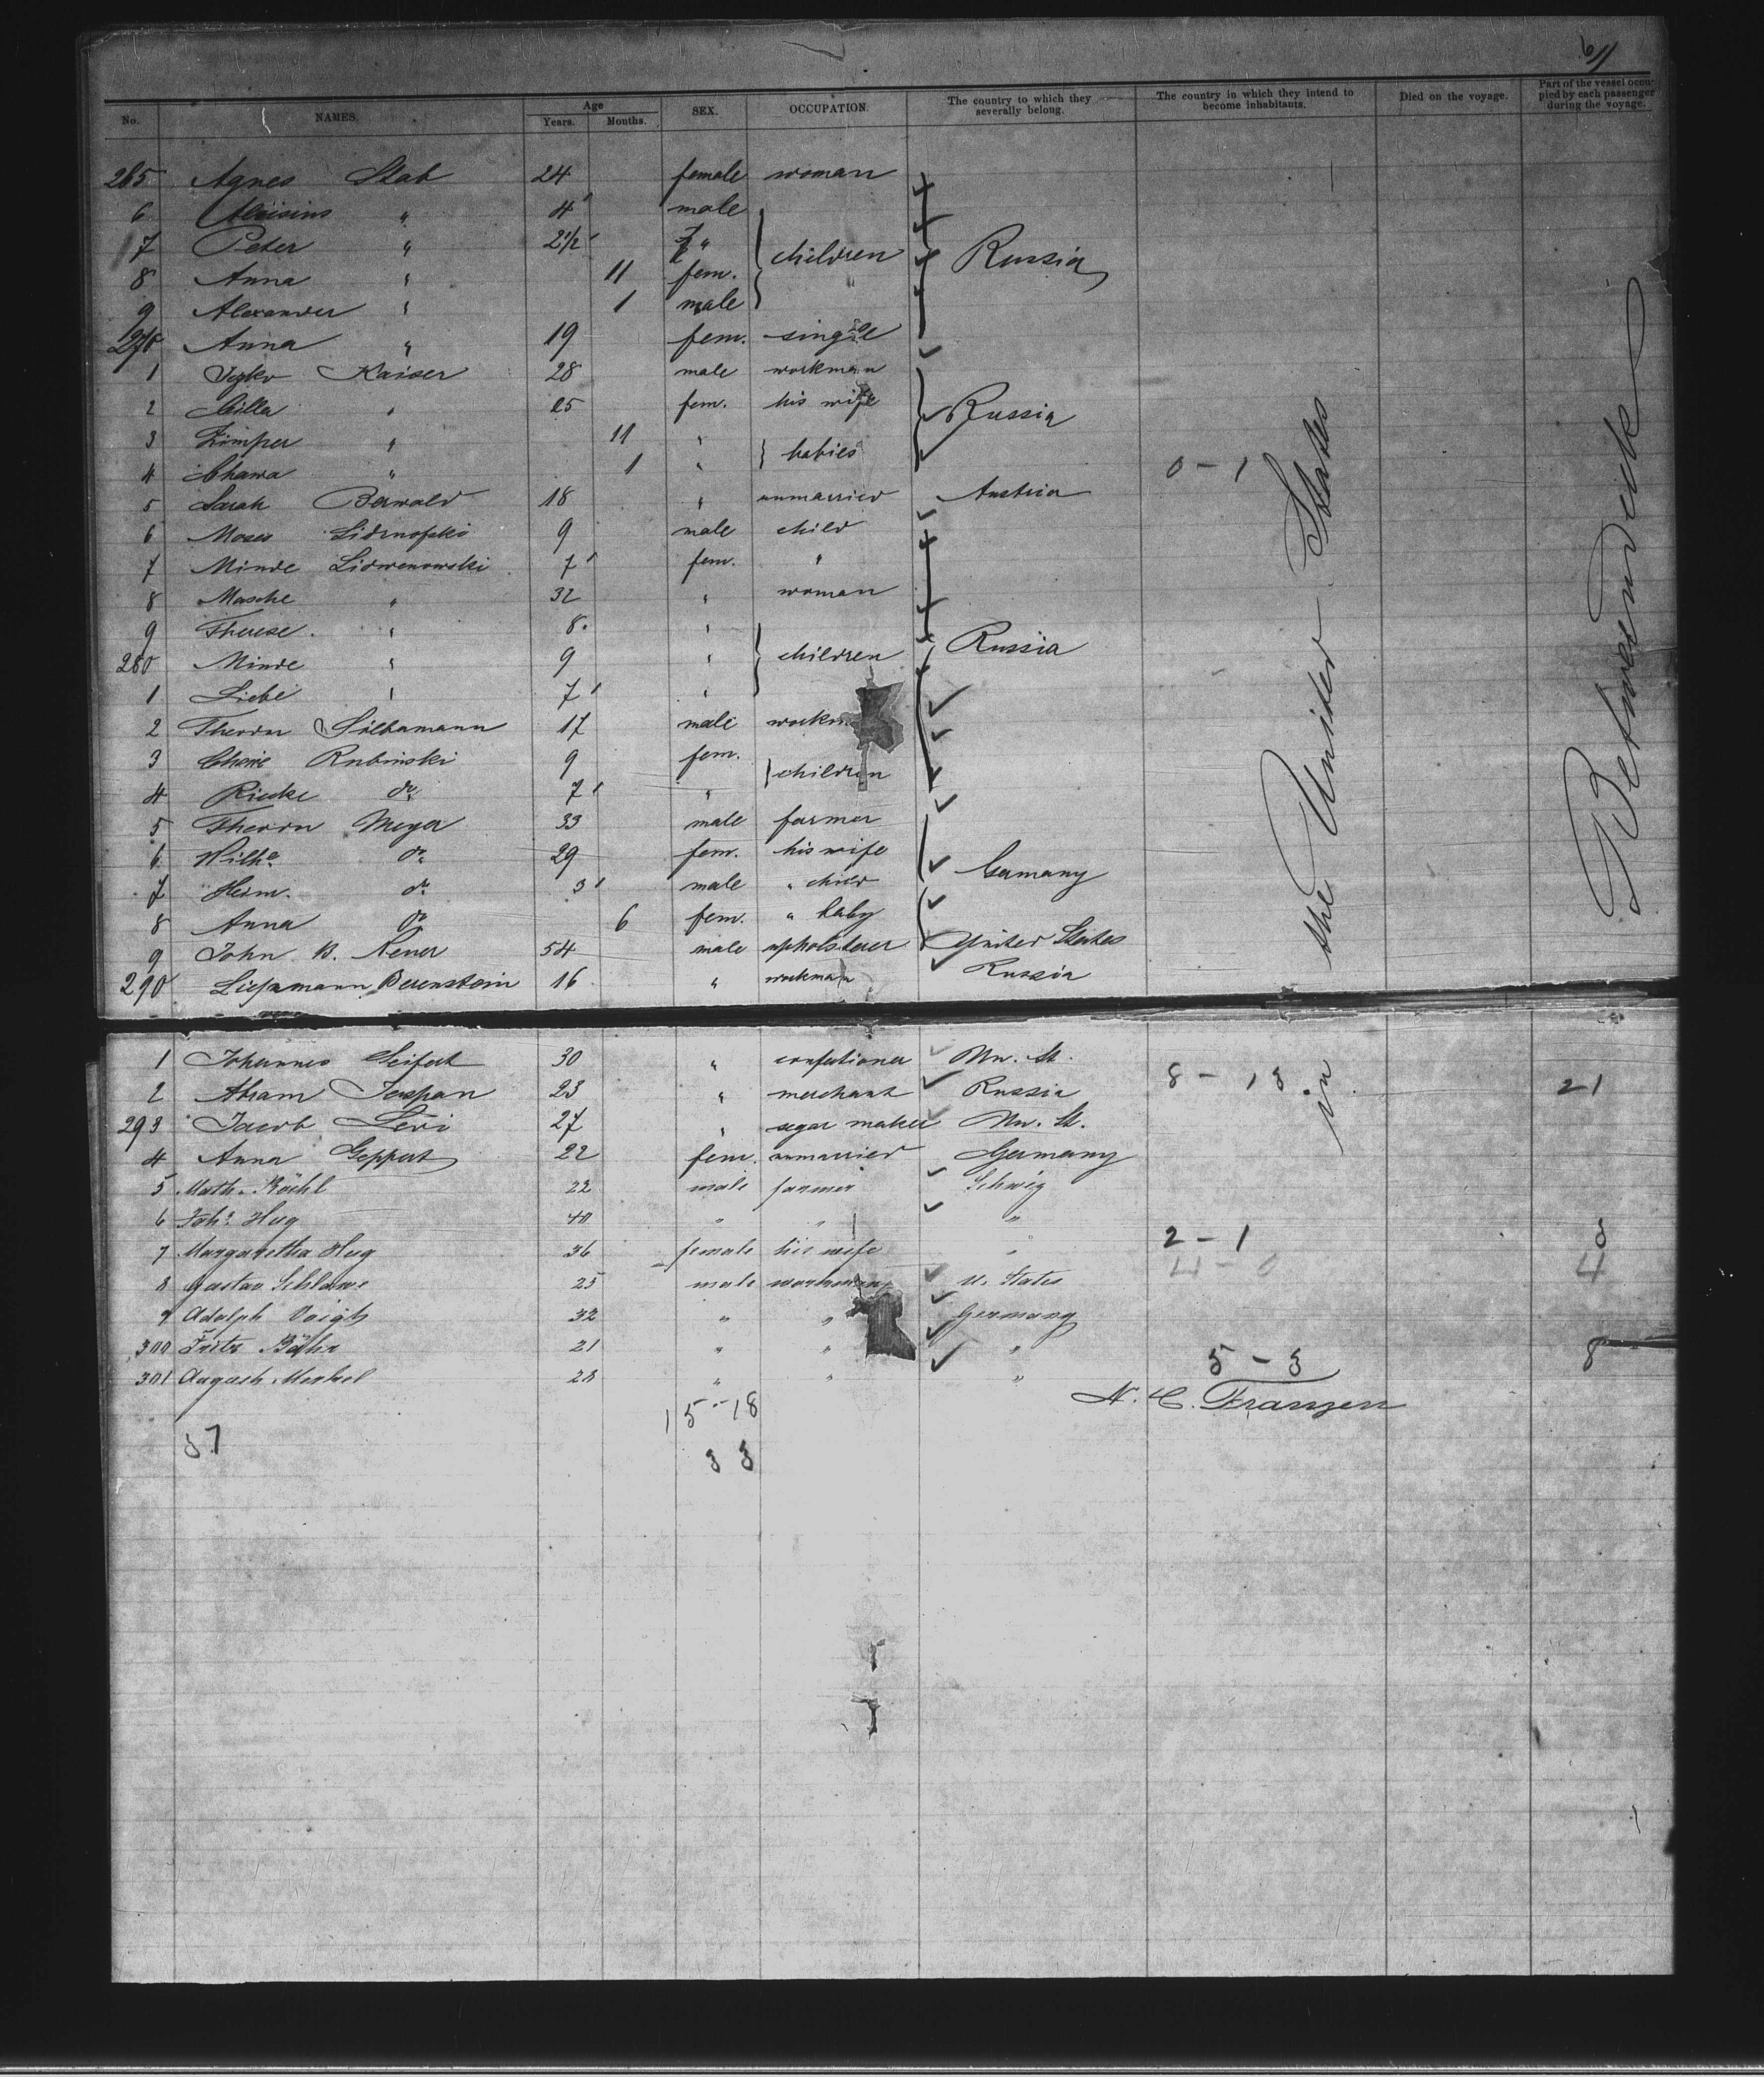 No. NAMES. Age Years. Months. SEX. OCCUPATION. The country to which they severally belong. The country in which they intend to become inhabitants. Died on the voyage. Part of the vessel occupied by each passenger during the voyage.
265 Agnes Stab 24 female woman
6 Aloisius " 4 male
7 Peter " 2 1/2 " children Russia
8 Anna " 11 fem.
9 Alexander " 1 male
270 Anna " 19 fem. single
1 Kaiser 28 male workman
2 Cilla " 25 fem. his wife Russia
3 Zimper " 11 " babies
4 Chawa " 1 " 0 - 1
5 Sarah Berwald 18 " unmarried Austria
6 Moses 9 male child
7 Minde Lidwenowski 7 fem. "
8 Masche " 32 " woman
9 Therese " 8 "
280 Minde " 9 " children Russia
1 Liebe " 7 "
2 Silbamann 17 male workm
3 Rubinski 9 fem. children
4 Riecke do. 7 "
5 Meyer 33 male farmer
6 Wilhe. do. 29 fem. his wife Germany
7 Herm. do. 3 male " child
8 Anna do 6 fem. " baby
9 John 54 male upholsterer United States
290 Berenstein 16 " workman Russia
the United States
Between deck
1 Johannes Seifert 30 " confectioner Un. St.
2 Abram 23 " merchant Russia 8 - 13 21
293 Jacob Levi 27 " segar maker Un. St.
4 Anna Geppert 22 fem. unmarried Germany
5 Math. Röchl 22 male farmer
6 Johs. Hug 40 " " "
7 Margaretha Hug 36 female his wife " 2 - 1 3
8 Gustav 25 male workman U. States 4 - 0 4
9 Adolph Voigt 32 " " Germany
300 Fritz Bähr 21 " " "
301 August Merkel 28 " " " 5 - 3 8
N. C. Franzen
15 - 18
37
33